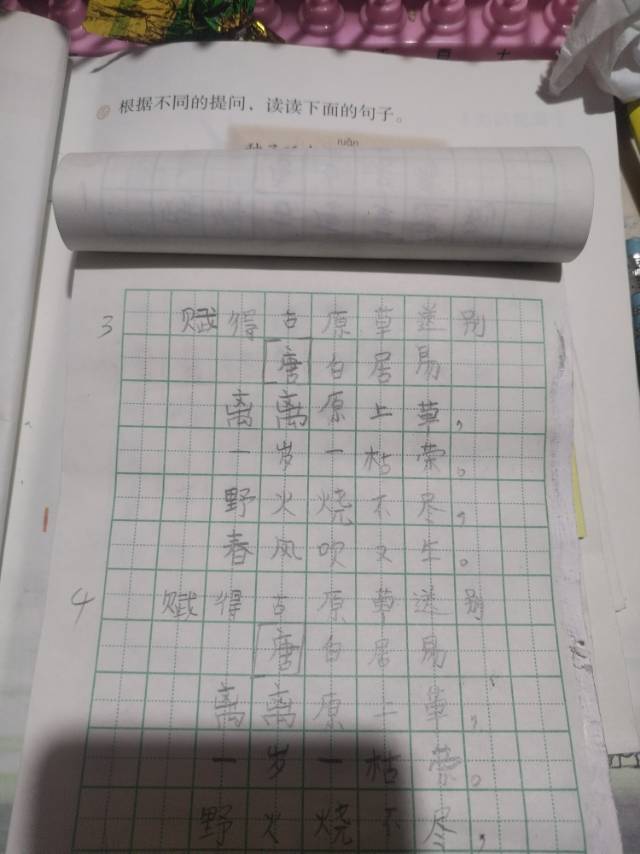 根据不同的提问，读读下面的句子。
ruǎn
3 赋得古原草送别
[唐]白居易
离离原上草，
一岁一枯荣。
野火烧不尽，
春风吹又生。
4 赋得古原草送别
[唐]白居易
离离原上草，
一岁一枯荣。
野火烧不尽，